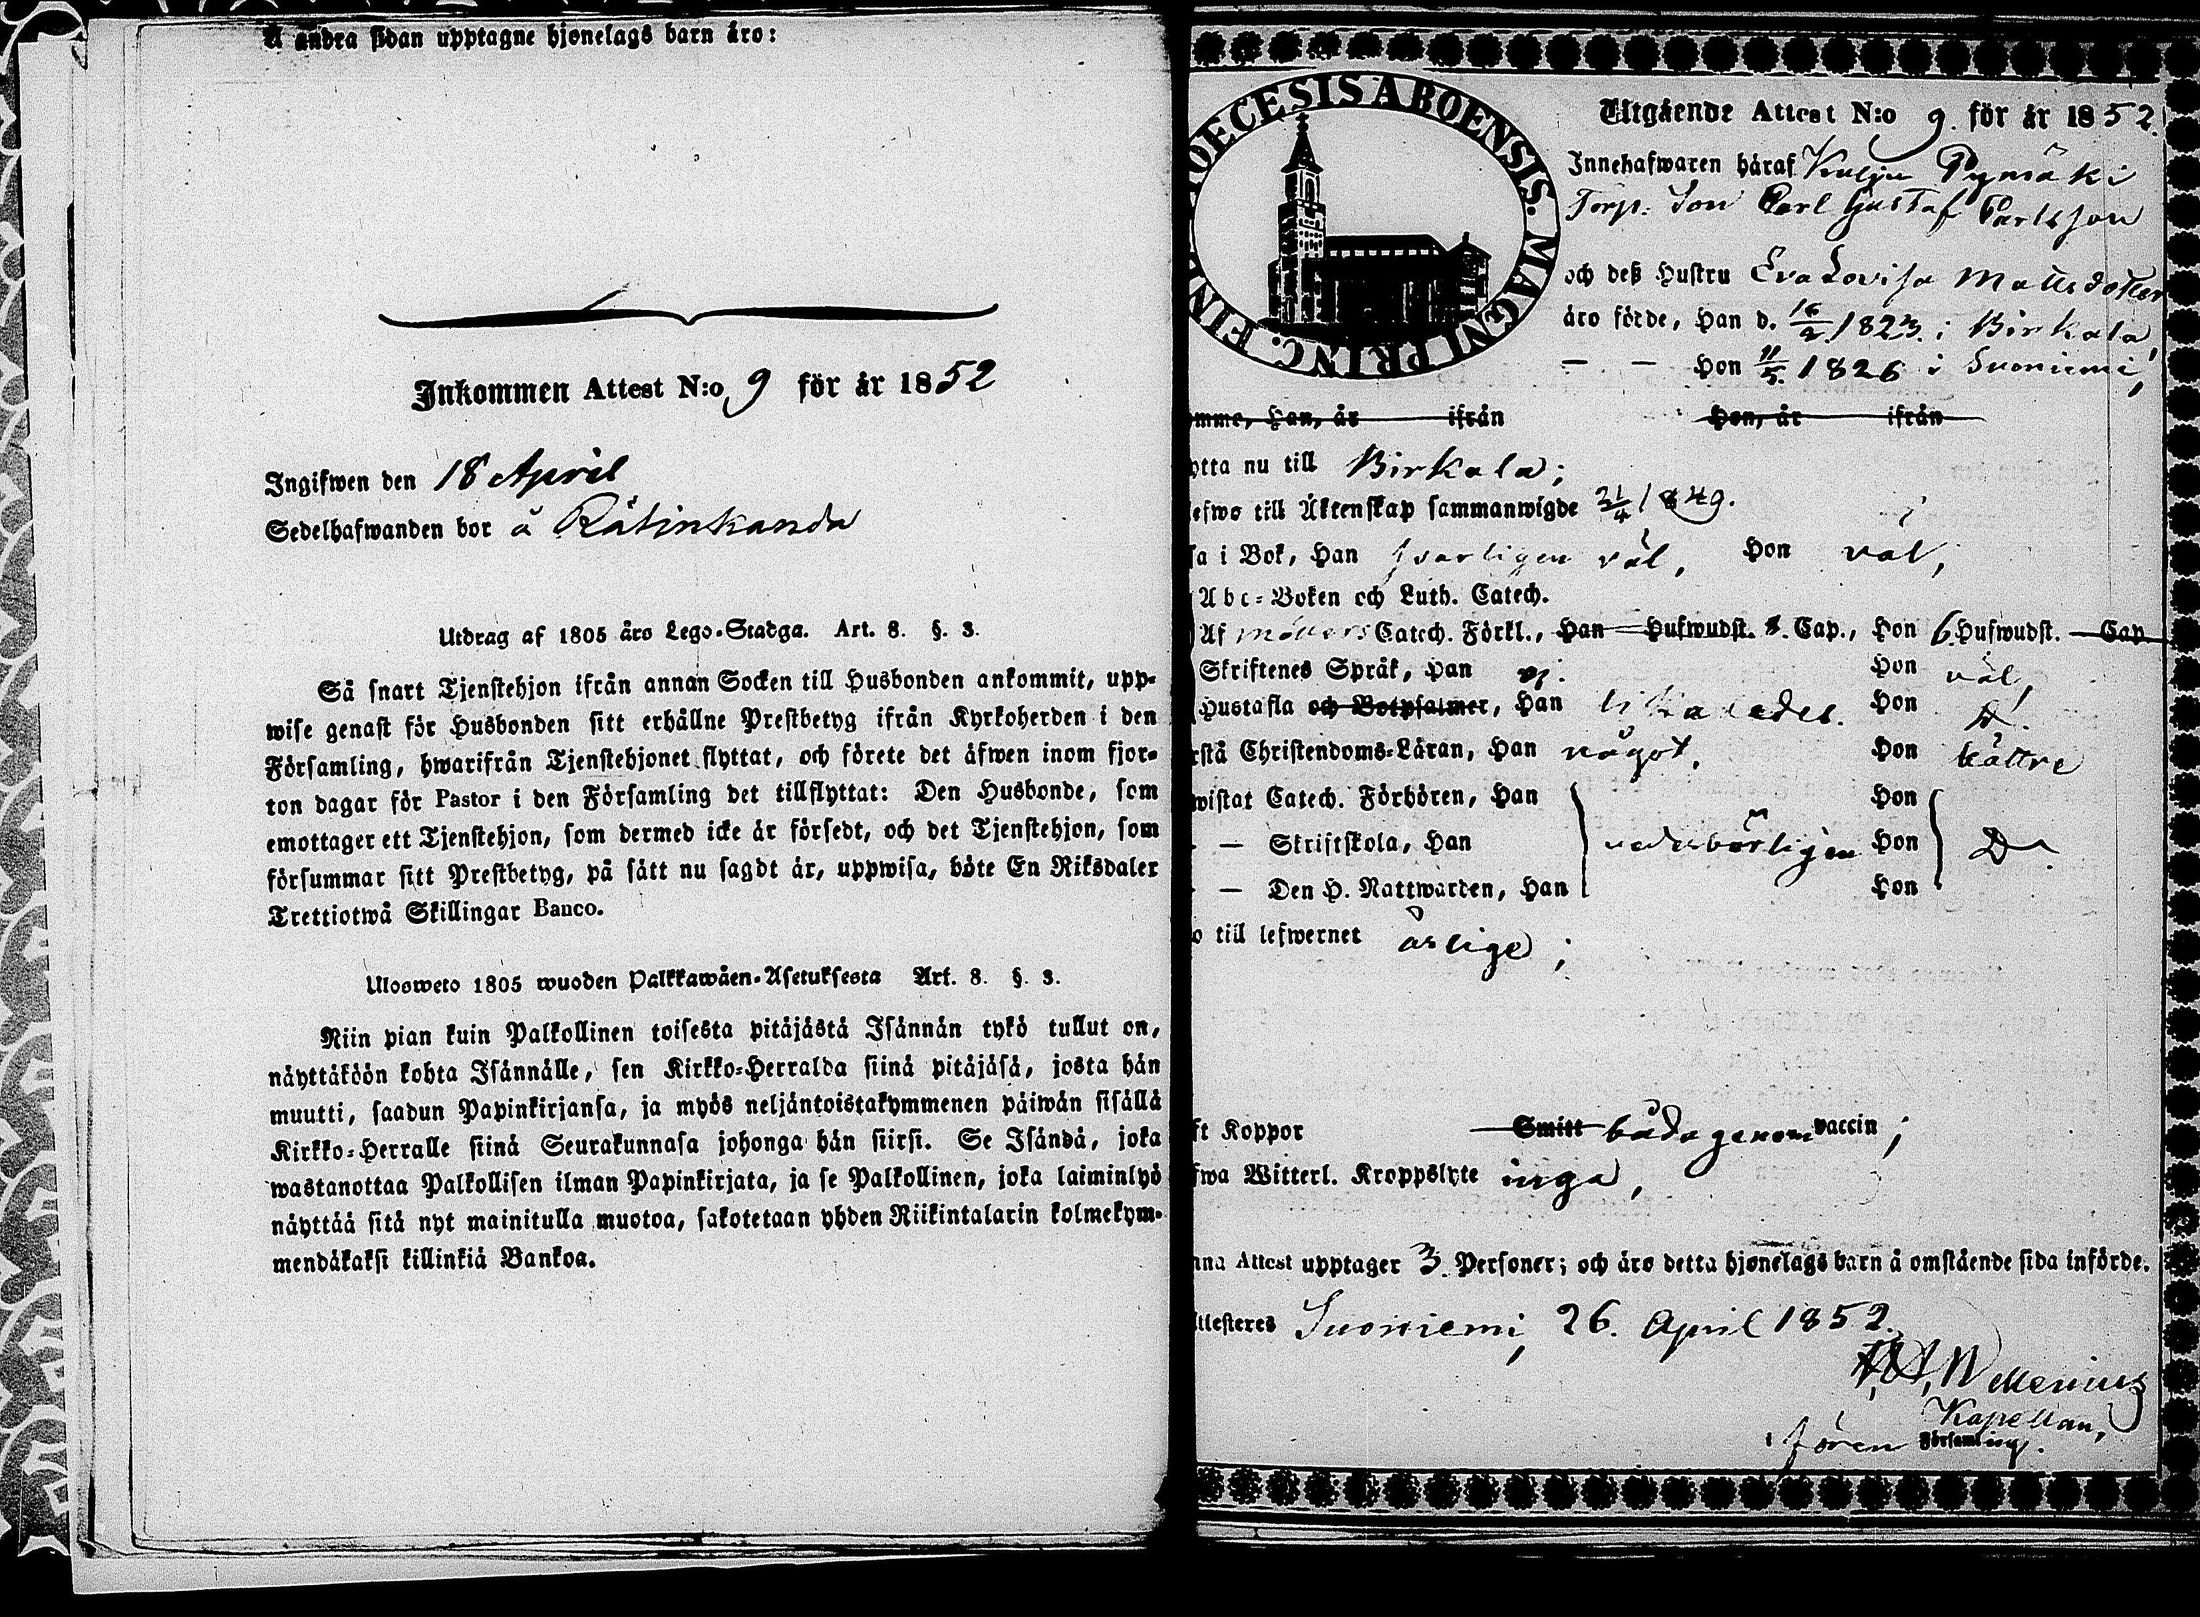 Å andra sidan upptagne hjonelags barn äro:
Inkommen Attest N:o 9 för år 1852
Ingifwen den 18 April
Sedelhafwanden bor å Rätinkanda
Utdrag af 1805 års Lego-Stadga. Art. 8. §. 3.
Så snart Tjenstehjon ifrån annan Socken till Husbonden ankommit, upp-
wise genast för Husbonden sitt erhållne Prestbetyg ifrån Kyrkoherden i den
Församling, hwarifrån Tjenstehjonet flyttat, och förete det äfwen inom fjor-
ton dagar för Pastor i den Församling det tillflyttat: Den Husbonde, som
emottager ett Tjenstehjon, som dermed icke är försedt, och det Tjenstehjon, som
försummar sitt Prestbetyg, på sätt nu sagdt är, uppwisa, böte En Riksdaler
Trettiotwå Skillingar Banco.
Ulosweto 1805 wuoden Palkkawäen-Asetuksesta Art. 8. §. 3.
Niin pian kuin Palkollinen toisesta pitäjästä Isännän tykö tullut on,
näyttäköön kohta Isännälle, sen Kirkko-Herralda siinä pitäjäsä, josta hän
muutti, saadun Papinkirjansa, ja myös neljäntoistakymmenen päiwän sisällä
Kirkko-Herralle siinä Seurakunnasa johonga hän siirsi. Se Isändä, joka
wastanottaa Palkollisen ilman Papinkirjata, ja se Palkollinen, joka laiminlyö
näyttää sitä nyt mainitulla muotoa, sakotetaan yhden Riikintalarin kolmekym-
mendäkaksi killinkiä Bankoa.
DIOECESIS ABOENSIS. MAGNI PRINC. FIN
Utgående Attest N:o 9. för år 1852.
Innehafwaren häraf Kulju Pymäki
Torp. Son Carl Gustaf Carlsson
och deß Hustru Eva Lovisa Mattsdotter
äro födde, Han d. 16/2 1823. i Birkala,
— — Hon 11/5. 1826 i Suoniemi,
omme, Han, år ifrån Hon, år ifrån
ytta nu till Birkala;
efwo till Äktenskap sammanwigde 21/4 1849.
sa i Bok, Han svarligen väl, Hon väl,
Abc-Boken och Luth. Catech.
Af Möllers Catech. Förkl., Han Hufwudst. 8. Cap., Hon 6. Hufwudst. Cap.
Skriftenes Språk, Han ej. Hon väl,
Hustafla och Botpsalmer, Han likaledes. Hon D.
rstå Christendoms-Läran, Han något. Hon bättre
wistat Catech. Förhören, Han Hon
— — Skriftskola, Han vederbörligen Hon D.
— — Den H. Nattwarden, Han Hon
o till lefwernet ärlige;
ft Koppor Smitt båda genom vaccin;
fwa Witterl. Kroppslyte inga,
nna Attest upptager 3. Personer; och äro detta hjonelags barn å omstående sida införde.
ttesteres Suoniemi, 26. April 1852.
Wellenius
Kapellan,
i fören Församling.